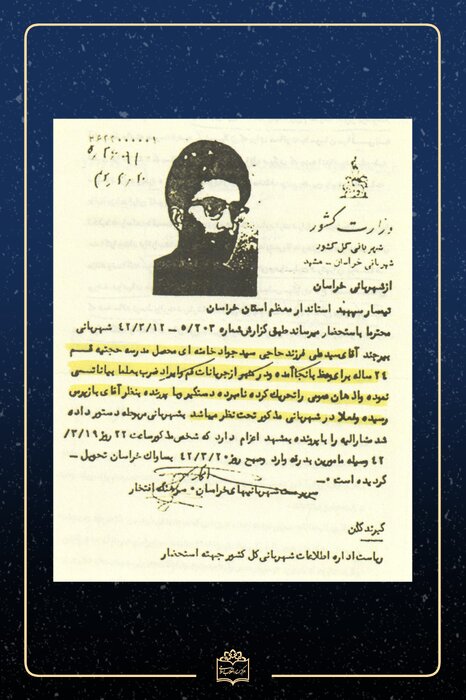 وزارت کشور
شهربانی کل کشور
شهربانی خراسان - مشهد
از شهربانی خراسان
تیمسار سپهبد استاندار معظم استان خراسان
محترما باستحضار میرساند طبق گزارش شماره ۵/۲۰۳ - ۴۲/۳/۱۲ شهربانی
بیرجند آقای سید علی فرزند حاجی سید جواد خامنه ای محصل مدرسه حجتیه قسم
۲۴ ساله برای وعظ بآنجا آمده و در منبر از جریانات قم و ایراد ضرب بعلما بیاناتی
نموده و اذهان عمومی را تحریک کرده نامبرده دستگیر و با پرونده بنظر آقای بازپرس
رسیده و فعلا در شهربانی مذکور تحت نظر میباشد بشهربانی مربوطه دستور داده
شد مشارالیه را با پرونده بمشهد اعزام دارد که شخص مذکور ساعت ۲۲ روز ۱۹/۳/
۴۲ وسیله مامورین بدرقه وارد وصبح روز ۴۲/۳/۲۰ بساواک خراسان تحویل -
گردیده است ۰-
سرپرست شهربانیهای خراسان ۰ سرهنگ افتخار
گیرندگان
ریاست اداره اطلاعات شهربانی کل کشور جهته استحضار